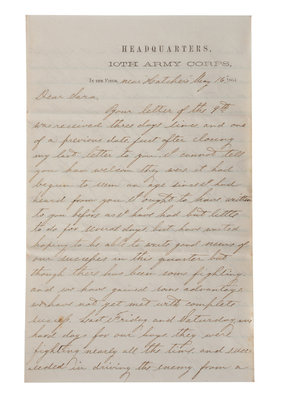 HEADQUARTERS,
10TH ARMY CORPS,
In the Field, near Hatchers May 16, 1864
Dear Sara,
Your letter of the 9th
was received three days since and one
of a previous date just after closing
my last letter to you. I cannot tell
you how welcom they were it had
begun to seem an age since I had
heard from you. I ought to have written
to you before as I have had but little
to do for several days, but have waited
hoping to be able to write good news of
our success in this quarter but
though there has been some fighting
and we have gained some advantage
we have not yet met with complete
success, Last Friday and Saturday were
hard days for our boys, they were
fighting nearly all the time, and succ-
eeded in driving the enemy from a